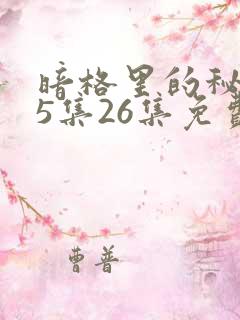 暗格里的秘
5集26集免费
曹普